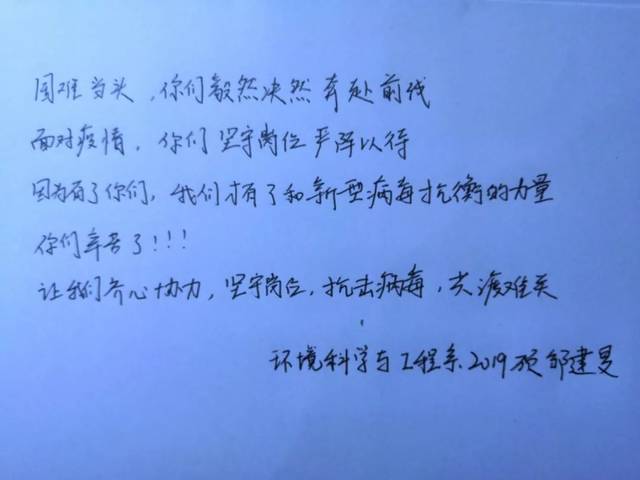 国难当头，你们毅然决然奔赴前线
面对疫情，你们坚守岗位严阵以待
因为有了你们，我们才有了和新型病毒抗衡的力量
你们辛苦了!!!
让我们齐心协力，坚守岗位，抗击病毒，共渡难关
环境科学与工程系2019硕 建